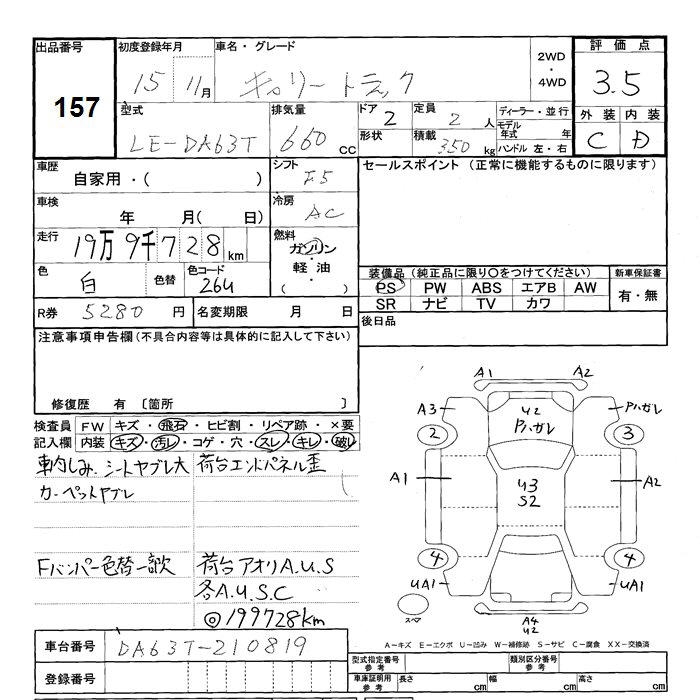 出品番号 初度登録年月 車名・グレード 2WD ・ 4WD 評価点
157 15 11月 キャリートラック 3.5
型式 排気量 ドア 2 定員 2 人 ディーラー・並行 外装 内装
LE-DA63T 660 cc 形状 積載 350 kg モデル年式 年 C D
ハンドル 左・右
車歴 シフト F5 セールスポイント (正常に機能するものに限ります)
自家用・( )
車検 冷房
年 月( 日) AC
走行 燃料
19万9千728km ガソリン ・ 軽油 ( )
色 白 色替 色コード 26U 装備品 (純正品に限り○をつけてください) 新車保証書
PS PW ABS エアB AW 有・無
SR ナビ TV カワ
R券 5280 円 名変期限 月 日 後日品
注意事項申告欄 (不具合内容等は具体的に記入して下さい)
修復歴 有 〔箇所 〕
検査員記入欄 FW キズ・飛石・ヒビ割・リペア跡・×要
内装 キズ・汚レ・コゲ・穴・スレ・キレ・破レ
車内しみ.シートヤブレ大 荷台エンドパネル歪
カーペットヤブレ
Fバンパー色替一部欠 荷台アオリA.U.S
各A.U.S.C
◎199728km
A1 A2
A3 U2 Pハガレ Pハガレ
2 3
A1 U3 S2 A2
4 4
UA1 UA1
スペア A4 U2
A－キズ E－エクボ U－凹み W－補修跡 S－サビ C－腐食 XX－交換済
車台番号 DA63T-210819
型式指定番号 参考 類別区分番号 参考
登録番号 車庫証明用 参考 長さ cm 幅 cm 高さ cm